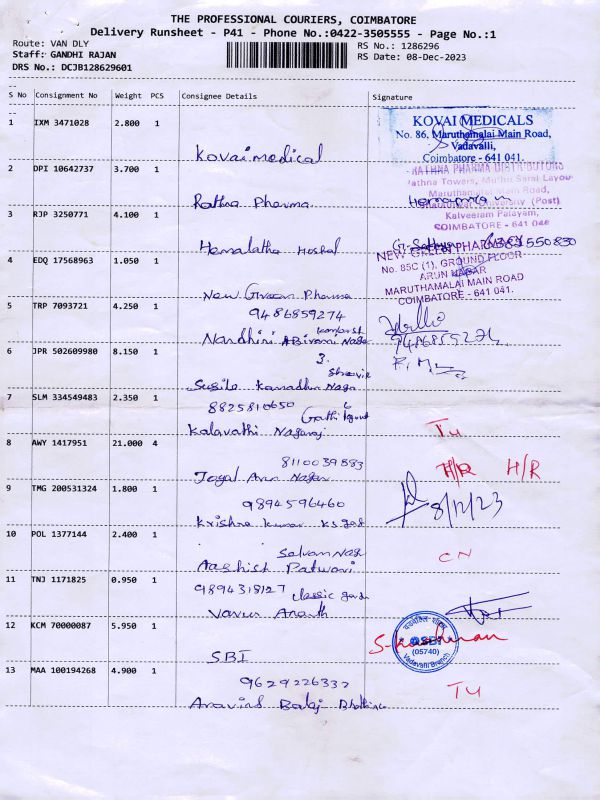 THE PROFESSIONAL COURIERS, COIMBATORE
Delivery Runsheet - P41 - Phone No.:0422-3505555 - Page No.:1
Route: VAN DLY RS No.: 1286296
Staff: GANDHI RAJAN RS Date: 08-Dec-2023
DRS No.: DCJB128629601
S No Consignment No Weight PCS Consignee Details Signature
1 IXM 3471028 2.800 1
Kovai medical
KOVAI MEDICALS
No. 86, Maruthamalai Main Road,
Vadavalli,
Coimbatore - 641 041.
2 DPI 10642737 3.700 1
Rathna Pharma
RATHNA PHARMA DISTRIBUTORS
Rathna Towers, Muthu Layou
Maruthamalai Main Road,
University (Post)
Kalveeram Palayam,
COIMBATORE - 641 046
3 RJP 3250771 4.100 1
Hemalatha
4 EDQ 17568963 1.050 1
New Green Pharma
NEW GREEN PHARMA
No. 85C (1), GROUND FLOOR
ARUN NAGAR
MARUTHAMALAI MAIN ROAD
COIMBATORE - 641 041.
5 TRP 7093721 4.250 1
9486859274
Nandhini Nagar
9486859274
6 JPR 502609980 8.150 1
3.
Susila Nagar
7 SLM 334549483 2.350 1
8825810650
Kalavathi Nagaraj
TU
8 AWY 1417951 21.000 4
8110039583
Arun Nagar
H/R H/R
9 TMG 200531324 1.800 1
9894596460
Krishna Kumar
8/12/23
10 POL 1377144 2.400 1
Selvam Nagar
Aashish Patwari
CN
11 TNJ 1171825 0.950 1
9894318127 classic
Varun Ananth
12 KCM 70000087 5.950 1
SBI
SBI
(05740)
Vadavalli Branch
13 MAA 100194268 4.900 1
9629226332
Aravind Balaji
TU